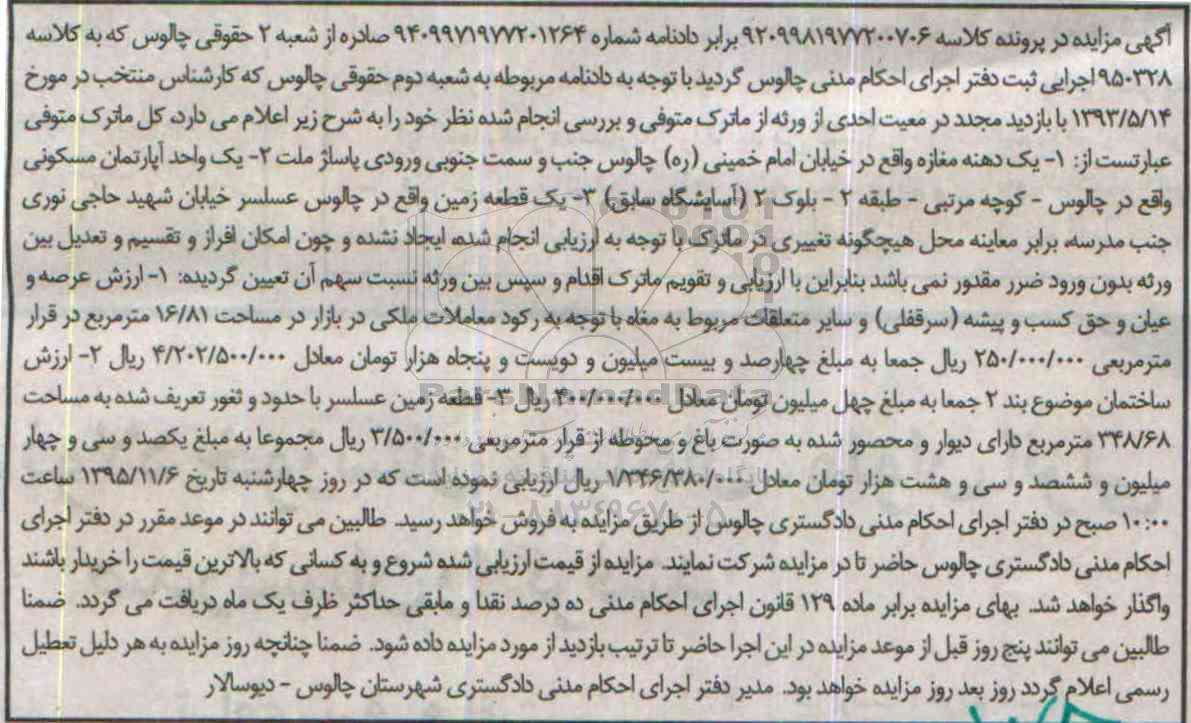 آگهی مزایده در پرونده کلاسه ۹۲۰۹۹۸۱۹۷۷۲۰۰۷۰۶ برابر دادنامه شماره ۹۴۰۹۹۷۱۹۷۷۲۰۱۲۶۴ صادره از شعبه ۲ حقوقی چالوس که به کلاسه
۹۵۰۳۲۸ اجرایی ثبت دفتر اجرای احکام مدنی چالوس گردید با توجه به دادنامه مربوطه به شعبه دوم حقوقی چالوس که کارشناس منتخب در مورخ
۱۳۹۳/۵/۱۴ با بازدید مجدد در معیت احدی از ورثه از ماترک متوفی و بررسی انجام شده نظر خود را به شرح زیر اعلام می دارد، کل ماترک متوفی
عبارتست از: ۱- یک دهنه مغازه واقع در خیابان امام خمینی (ره) چالوس جنب و سمت جنوبی ورودی پاساژ ملت ۲- یک واحد آپارتمان مسکونی
واقع در چالوس - کوچه مرتبی - طبقه ۲ - بلوک ۲ (آسایشگاه سابق) ۳- یک قطعه زمین واقع در چالوس عسلسر خیابان شهید حاجی نوری
جنب مدرسه، برابر معاینه محل هیچگونه تغییری در ماترک با توجه به ارزیابی انجام شده، ایجاد نشده و چون امکان افراز و تقسیم و تعدیل بین
ورثه بدون ورود ضرر مقدور نمی باشد بنابراین با ارزیابی و تقویم ماترک اقدام و سپس بین ورثه نسبت سهم آن تعیین گردیده: ۱- ارزش عرصه و
عیان و حق کسب و پیشه (سرقفلی) و سایر متعلقات مربوط به مغاه با توجه به رکود معاملات ملکی در بازار در مساحت ۱۶/۸۱ مترمربع در قرار
مترمربعی ۲۵۰/۰۰۰/۰۰۰ ریال جمعا به مبلغ چهارصد و بیست میلیون و دویست و پنجاه هزار تومان معادل ۴/۲۰۲/۵۰۰/۰۰۰ ریال ۲- ارزش
ساختمان موضوع بند ۲ جمعا به مبلغ چهل میلیون تومان معادل ۴۰۰/۰۰۰/۰۰۰ ریال ۳- قطعه زمین عسلسر با حدود و ثغور تعریف شده به مساحت
۳۴۸/۶۸ مترمربع دارای دیوار و محصور شده به صورت باغ و محوطه از قرار مترمربعی ۳/۵۰۰/۰۰۰ ریال مجموعا به مبلغ یکصد و سی و چهار
میلیون و ششصد و سی و هشت هزار تومان معادل ۱/۳۴۶/۳۸۰/۰۰۰ ریال ارزیابی نموده است که در روز چهارشنبه تاریخ ۱۳۹۵/۱۱/۶ ساعت
۱۰:۰۰ صبح در دفتر اجرای احکام مدنی دادگستری چالوس از طریق مزایده به فروش خواهد رسید. طالبین می توانند در موعد مقرر در دفتر اجرای
احکام مدنی دادگستری چالوس حاضر تا در مزایده شرکت نمایند. مزایده از قیمت ارزیابی شده شروع و به کسانی که بالاترین قیمت را خریدار باشند
واگذار خواهد شد. بهای مزایده برابر ماده ۱۲۹ قانون اجرای احکام مدنی ده درصد نقدا و مابقی حداکثر ظرف یک ماه دریافت می گردد. ضمنا
طالبین می توانند پنج روز قبل از موعد مزایده در این اجرا حاضر تا ترتیب بازدید از مورد مزایده داده شود. ضمنا چنانچه روز مزایده به هر دلیل تعطیل
رسمی اعلام گردد روز بعد روز مزایده خواهد بود. مدیر دفتر اجرای احکام مدنی دادگستری شهرستان چالوس - دیوسالار
ParsNamadData